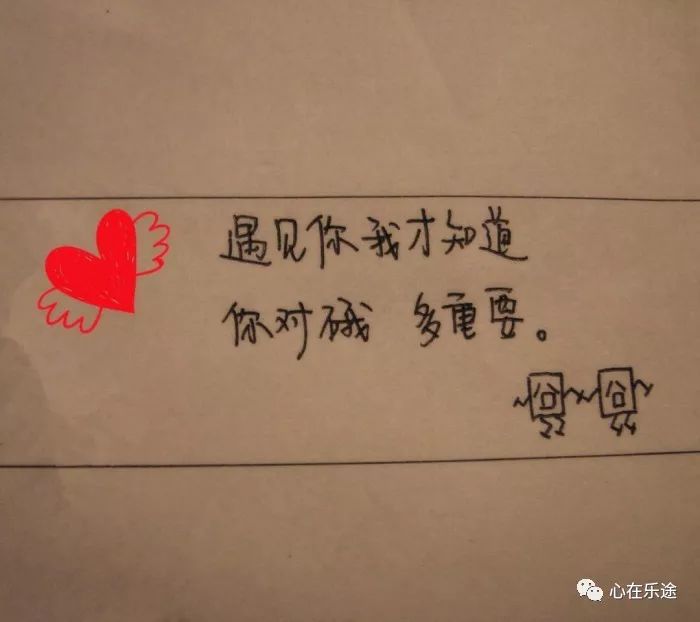 遇见你我才知道
你对硪 多重要。
囧囧
心在乐途